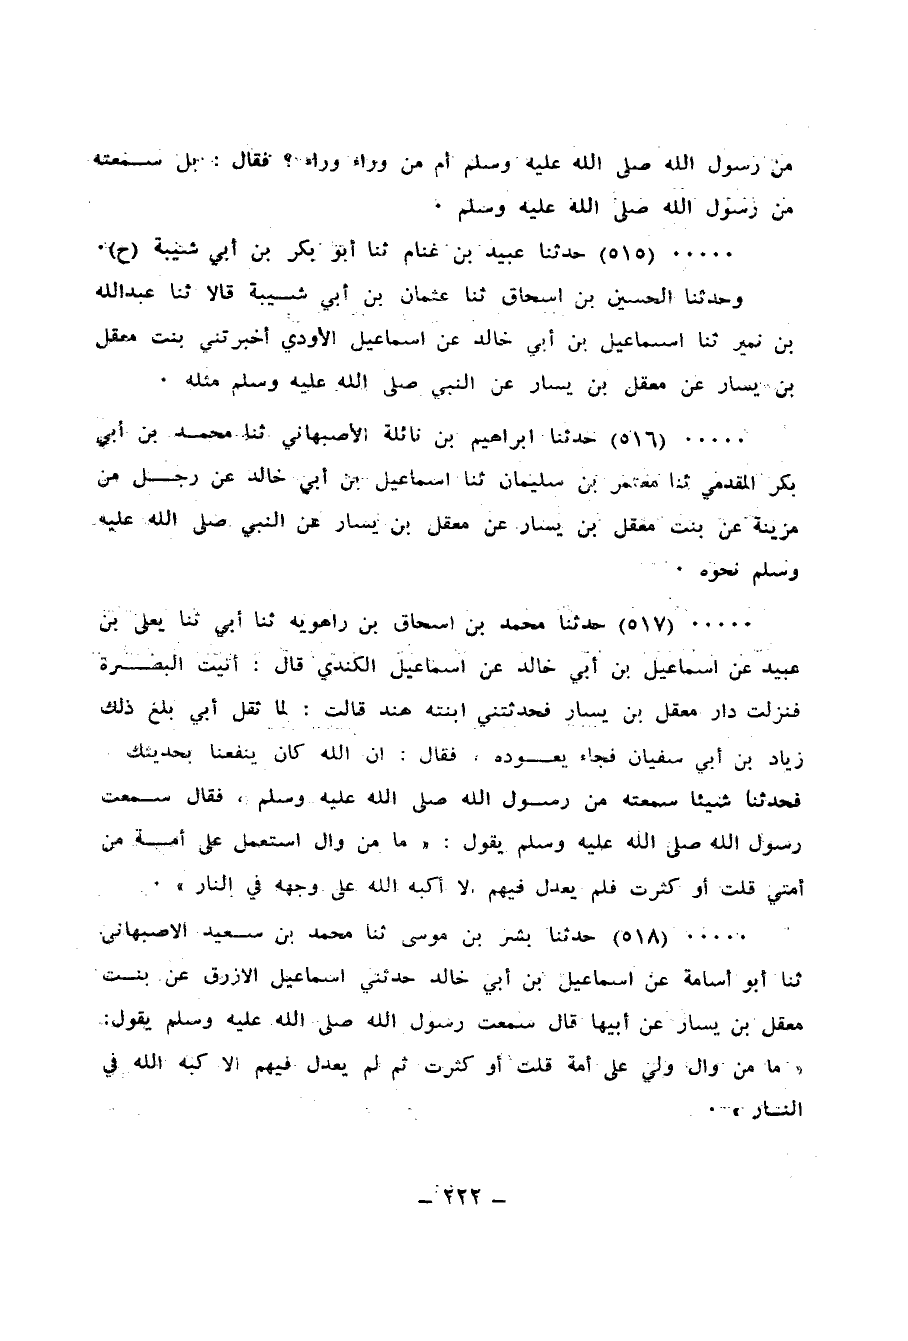 من رسول الله صلى الله عليه وسلم أم من وراء وراء ؟ فقال : بل سـمعته
من رسول الله صلى الله عليه وسلم ٠
٠٠٠٠٠ (٥١٥) حدثنا عبيد بن غنام ثنا أبو بكر بن أبي شيبة (ح)٠
وحدثنا الحسين بن اسحاق ثنا عثمان بن أبي شـيبة قالا ثنا عبدالله
بن نمير ثنا اسـماعيل بن أبي خالد عن اسماعيل الأودي أخبرتني بنت معقل
بن يسار عن معقل بن يسار عن النبي صلى الله عليه وسلم مثله ٠
٠٠٠٠٠ (٥١٦) حدثنا ابراهيم بن نائلة الأصبهاني ثنا محمـد بن أبي
بكر المقدمي ثنا معتمر بن سليمان ثنا اسماعيل بن أبي خالد عن رجـل من
مزينة عن بنت معقل بن يسار عن معقل بن يسار عن النبي صلى الله عليه
وسلم نحوه ٠
٠٠٠٠٠ (٥١٧) حدثنا محمد بن اسحاق بن راهويه ثنا أبي ثنا يعلى بن
عبيد عن اسماعيل بن أبي خالد عن اسماعيل الكندي قال : أتيت البصـرة
فنزلت دار معقل بن يسار فحدثتني ابنته هند قالت : لما ثقل أبي بلغ ذلك
زياد بن أبي سفيان فجاء يعـوده ، فقال : ان الله كان ينفعنا بحديثك
فحدثنا شيئا سمعته من رسـول الله صلى الله عليه وسلم ، فقال سـمعت
رسول الله صلى الله عليه وسلم يقول : « ما من وال استعمل على أمـة من
أمتي قلت أو كثرت فلم يعدل فيهم الا أكبه الله على وجهه في النار » ٠
٠٠٠٠٠ (٥١٨) حدثنا بشر بن موسى ثنا محمد بن سـعيد الاصبهاني
ثنا أبو أسامة عن اسماعيل بن أبي خالد حدثني اسماعيل الازرق عن بنـت
معقل بن يسار عن أبيها قال سمعت رسول الله صلى الله عليه وسلم يقول:
« ما من وال ولي على أمة قلت أو كثرت ثم لم يعدل فيهم الا كبه الله في
النـار » ٠
– ٢٢٢ –